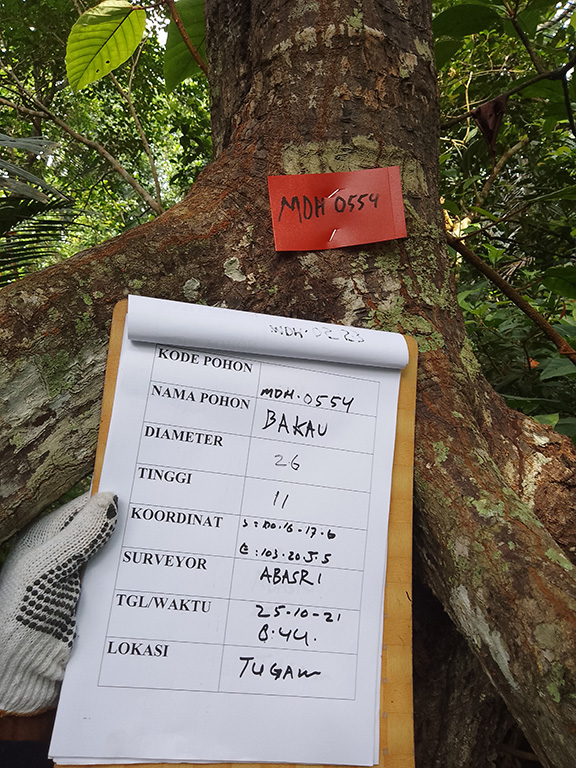 MDH 0554
KODE POHON MDH.0554
NAMA POHON BAKAU
DIAMETER 26
TINGGI 11
KOORDINAT S:00.16-17.6
E:103.20.5.5
SURVEYOR ABASRI
TGL/WAKTU 25-10-21
8.44.
LOKASI TUGAW